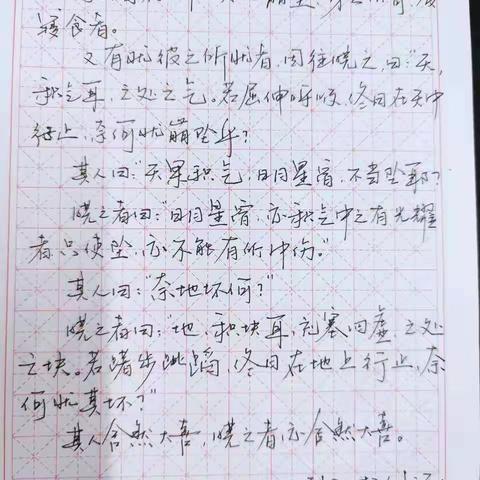 寝食者。
又有忧彼之所忧者,因往晓之,曰:“天,
积气耳,之处之气。若屈伸呼吸,终日在天中
行止,奈何忧崩坠乎?
其人曰:“天果积气,日月星宿,不当坠耶?
晓之者曰:“日月星宿,亦积气中之有光耀
者只使坠,亦不能有所中伤。”
其人曰:“奈地坏何?”
晓之者曰:“地,积块耳,充塞四虚,之处
之块。若躇步跳蹈,终日在地上行止,奈
何忧其坏?”
其人舍然大喜,晓之者亦舍然大喜。